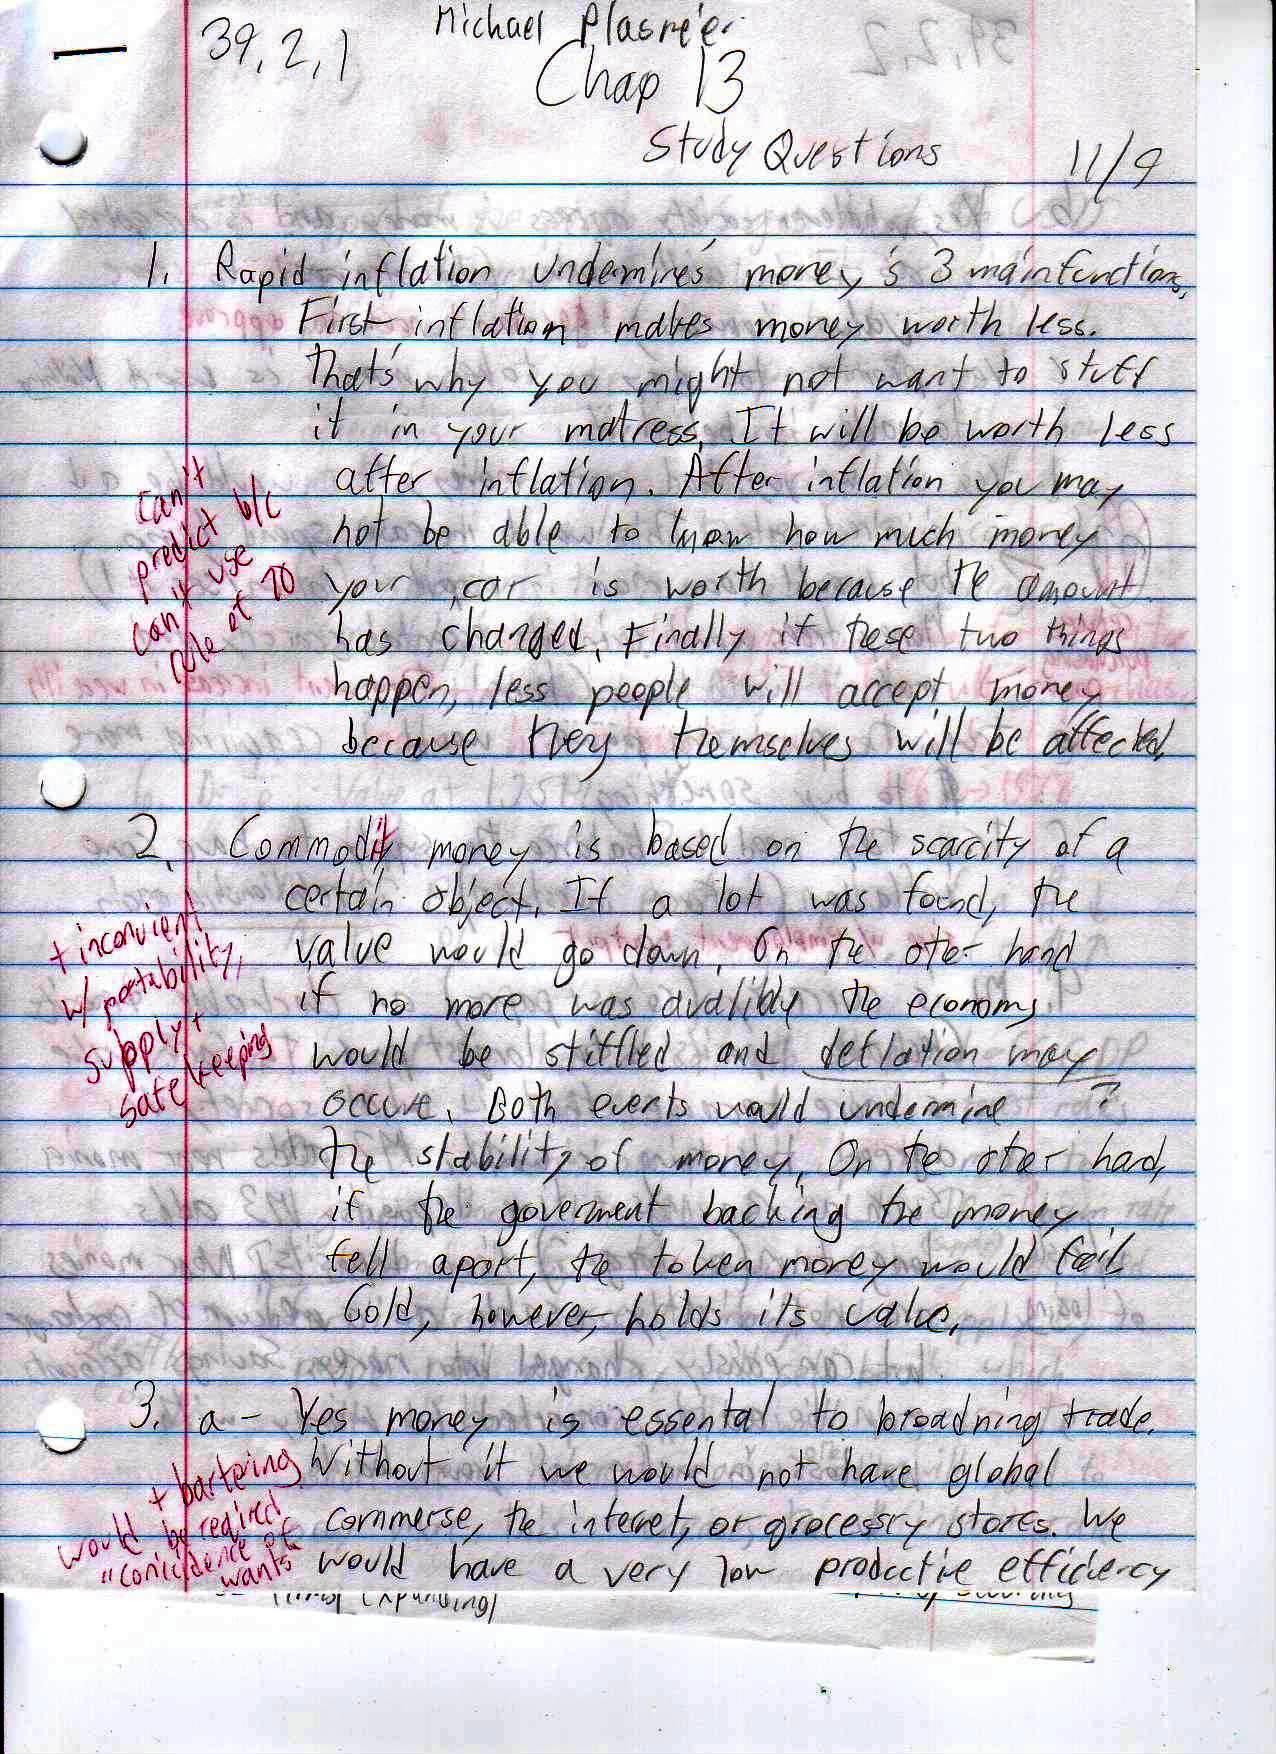 39.2.1
Michael Plasmeier
Chap 13
Study Questions 11/9
1. Rapid inflation undermines money's 3 main functions.
First inflation makes money worth less.
That's why you might not want to stuff
it in your matress. It will be worth less
after inflation. After inflation you may
not be able to know how much money
your car is worth because the amount
has changed. Finally if these two things
happen, less people will accept money
because they themselves will be affected.
can't
predict b/c
can't use
rule of 70
2. Commodity money is based on the scarcity of a
certain object. If a lot was found, the
value would go down. On the other hand
if no more was avalible the economy
would be stiffled and deflation may
occure. Both events would undermine ?
the stability of money. On the other hand,
if the goverment backing the money
fell apart, the token money would fail.
Gold, however, holds its value.
+ inconvient
w/ portability,
supply +
safe keeping
3. a - Yes money is essental to broadning trade.
Without it we would not have global
commerse, the internet, or grocessry stores. We
would have a very low productive efficiency
+ bartering
would be required
"conicidence of
wants
(time) expanding)